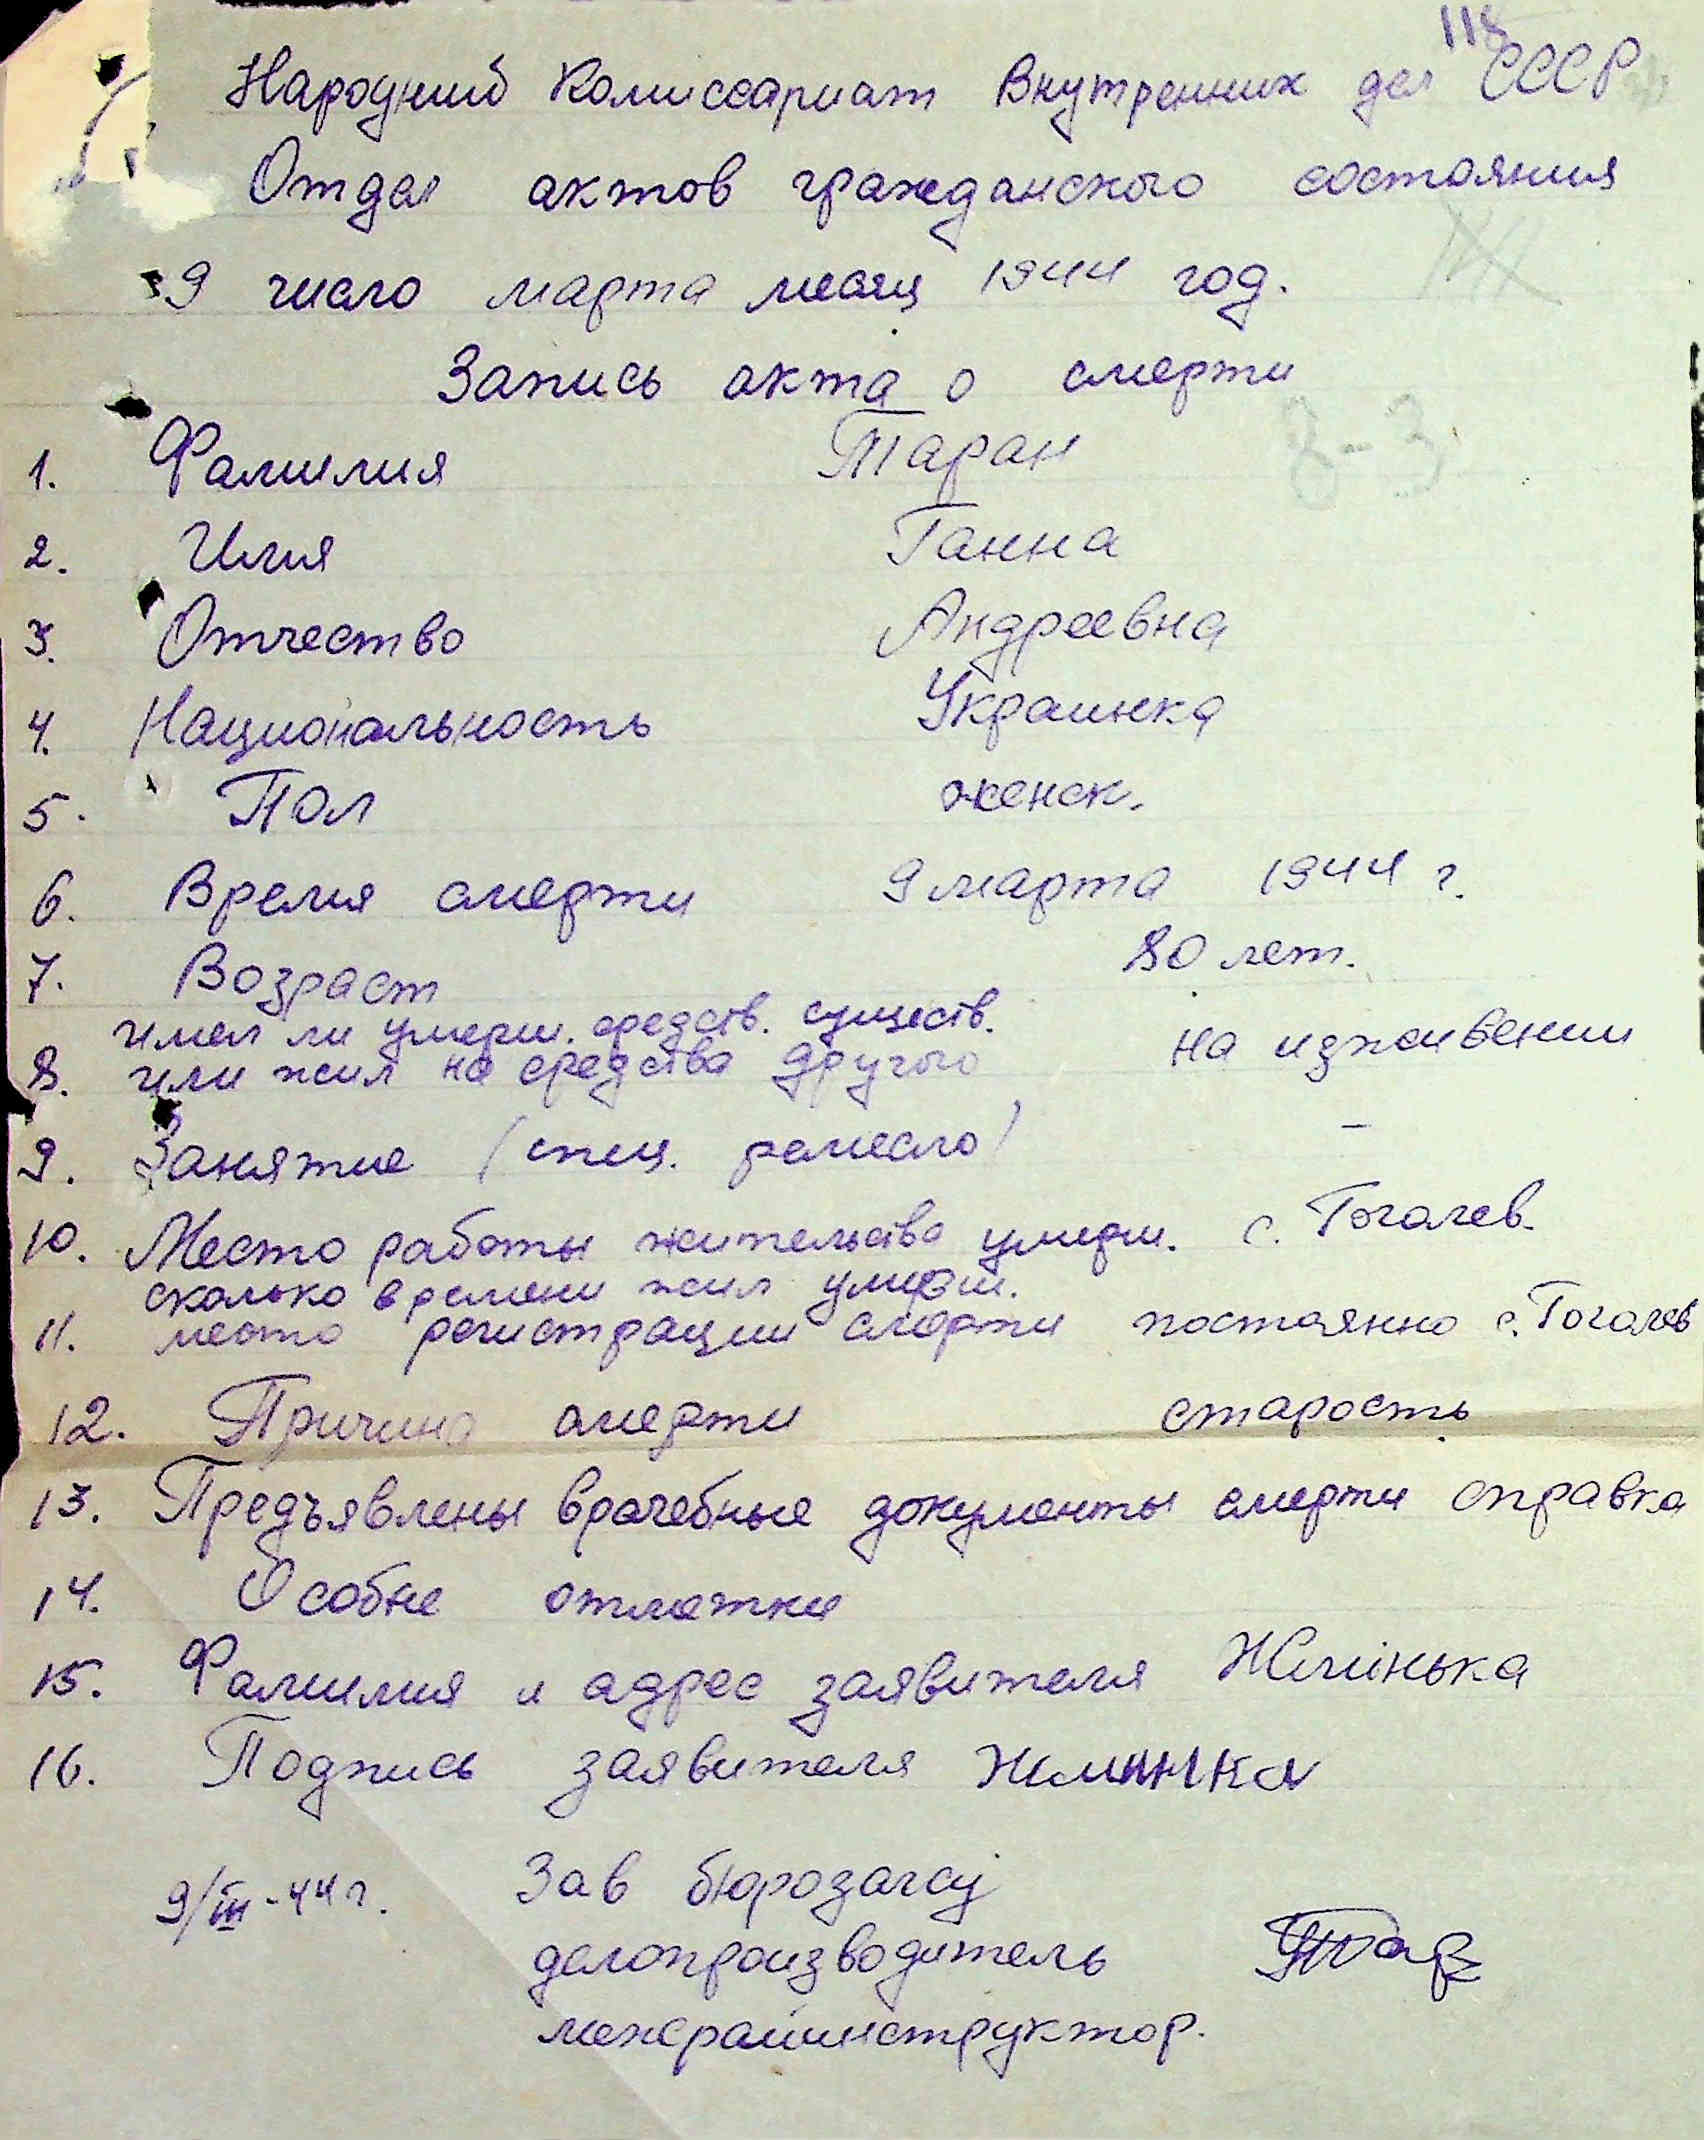 118
Народний Комиссариат Внутренних дел СССР
Отдел актов гражданского состояния
9 число марта месяц 1944 год.
Запись акта о смерти
8-3
1. Фамилия Таран
2. Имя Ганна
3. Отчество Андреевна
4. Национальность Украинка
5. Пол женск.
6. Время смерти 9 марта 1944 г.
7. Возраст 80 лет.
имел ли умерш. средств. существ.
8. или жил на средства другого на изживении
9. Занятие (спец. ремесло) –
10. Место работы жительства умерш. с. Гоголев.
сколько времени жил умерш.
11. место регистрации смерти постоянно с. Гоголев
12. Причина смерти старость
13. Предъявлены врачебные документы смерти справка
14. Особие отметки
15. Фамилия и адрес заявителя Жминька
16. Подпись заявителя Жминка
9/III-44 г. Зав бюрозагсу
делопроизводитель
межрайинструктор.